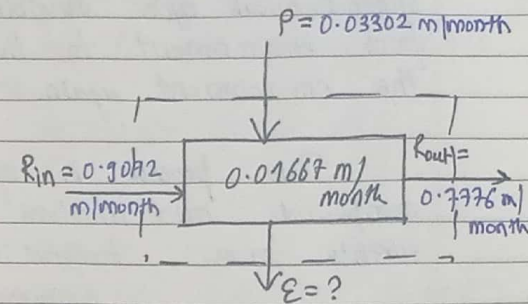 P = 0.03302 m/month
Rin = 0.9072
m/month
0.01667 m/
month
Rout =
0.7776 m/
month
ε = ?